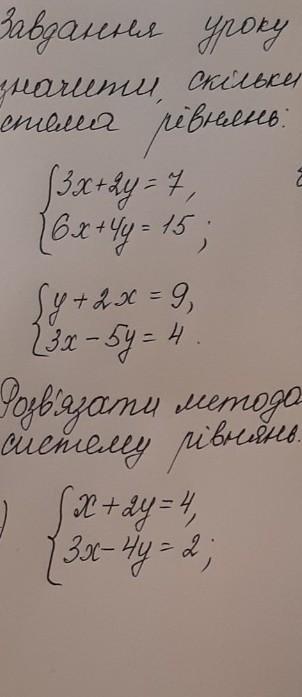 Завдання уроку
значити, скільки
стема рівнянь:
{3x+2y = 7,
6x+4y = 15;
{y + 2x = 9,
3x - 5y = 4.
Розв'язати метода
систему рівнянь.
) {x + 2y = 4,
3x - 4y = 2;